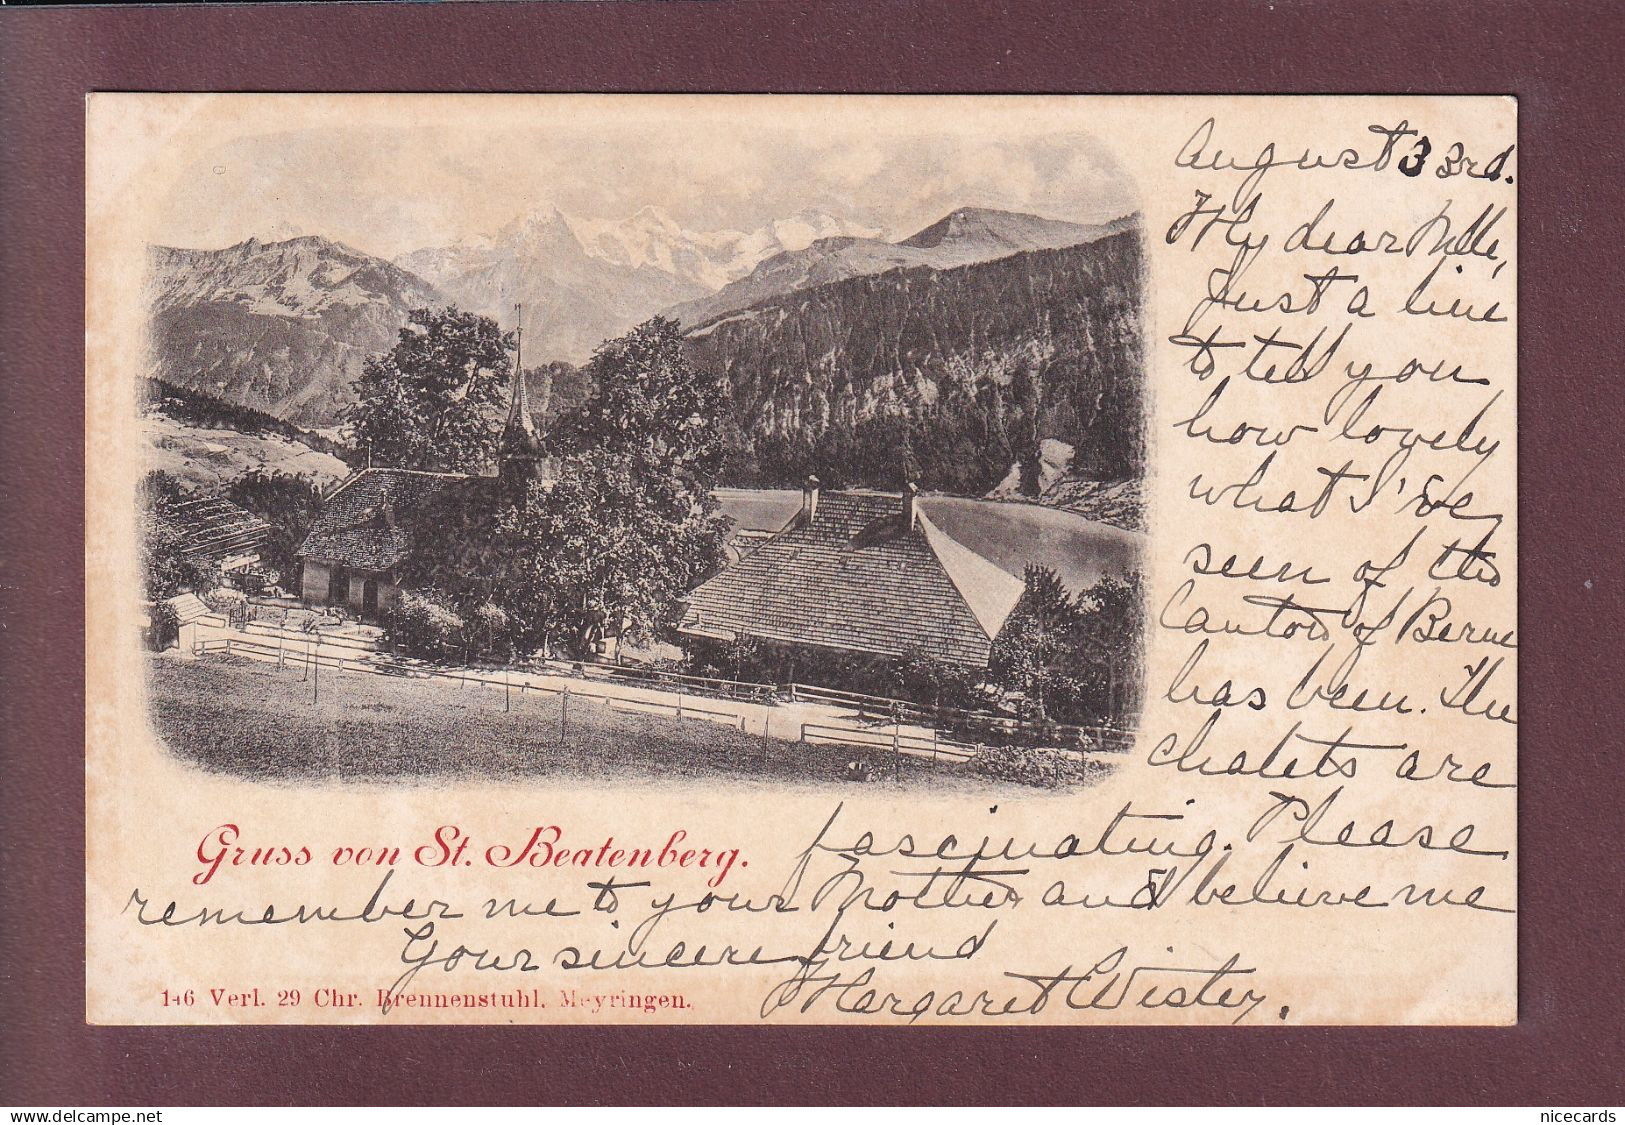 August 3 3rd.
My dear Nelle,
Just a line
to tell you
how lovely
what I've
seen of the
Canton of Berne
has been. The
chalets are
fascinating. Please
remember me to your Mother and believe me
Your sincere friend
Margaret Wister.
Gruss von St. Beatenberg.
146 Verl. 29 Chr. Brennenstuhl, Meyringen.
delcampe.net
nicecards